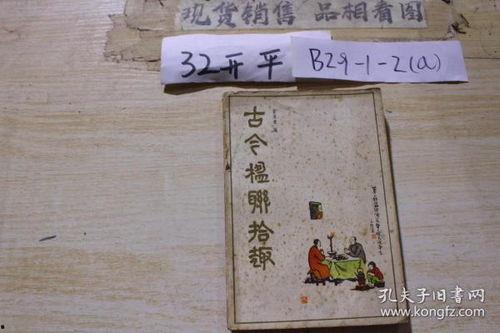 现货销售 品相看图
32开平
B29-1-2(a)
古今楹联拾趣
孔夫子旧书网
www.kongfz.com